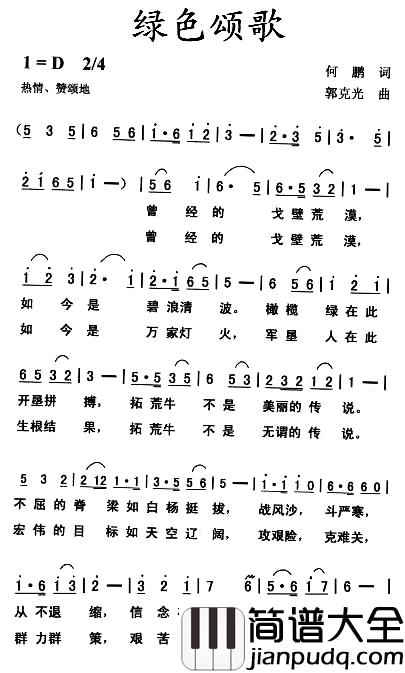 绿色颂歌
1=D 2/4
何 鹏 词
热情、赞颂地
郭克光 曲
(5 3 5 | 6 5 6 | 1·6 1 2 | 3 — | 2·3 5 |
2 1 6 5 | 1 —) | 5 6 1 | 6· 5 | 6·5 3 2 | 1 — |
曾 经的 戈壁荒 漠,
曾 经的 戈壁荒 漠,
1 2 3 | 2· 1 | 2·1 6 5 | 5· 1 6 | 1 2 1 |
如 今是 碧浪清 波。橄榄 绿在此
如 今是 万家灯 火,军垦 人在此
6 5 3 2 | 3 — | 5·6 5 | 6 5 | 3 2 3 2 | 1· 0 |
开垦拼 搏,拓荒牛 不是 美丽的 传 说。
生根结 果,拓荒牛 不是 无谓的 传 说。
不屈的脊 梁如白杨挺 拔,战风沙,斗严寒,
宏伟的目 标如天空辽 阔,攻艰险,克难关,
从不退 缩,信念
群力群 策,艰苦
简谱大全
jianpudq.com